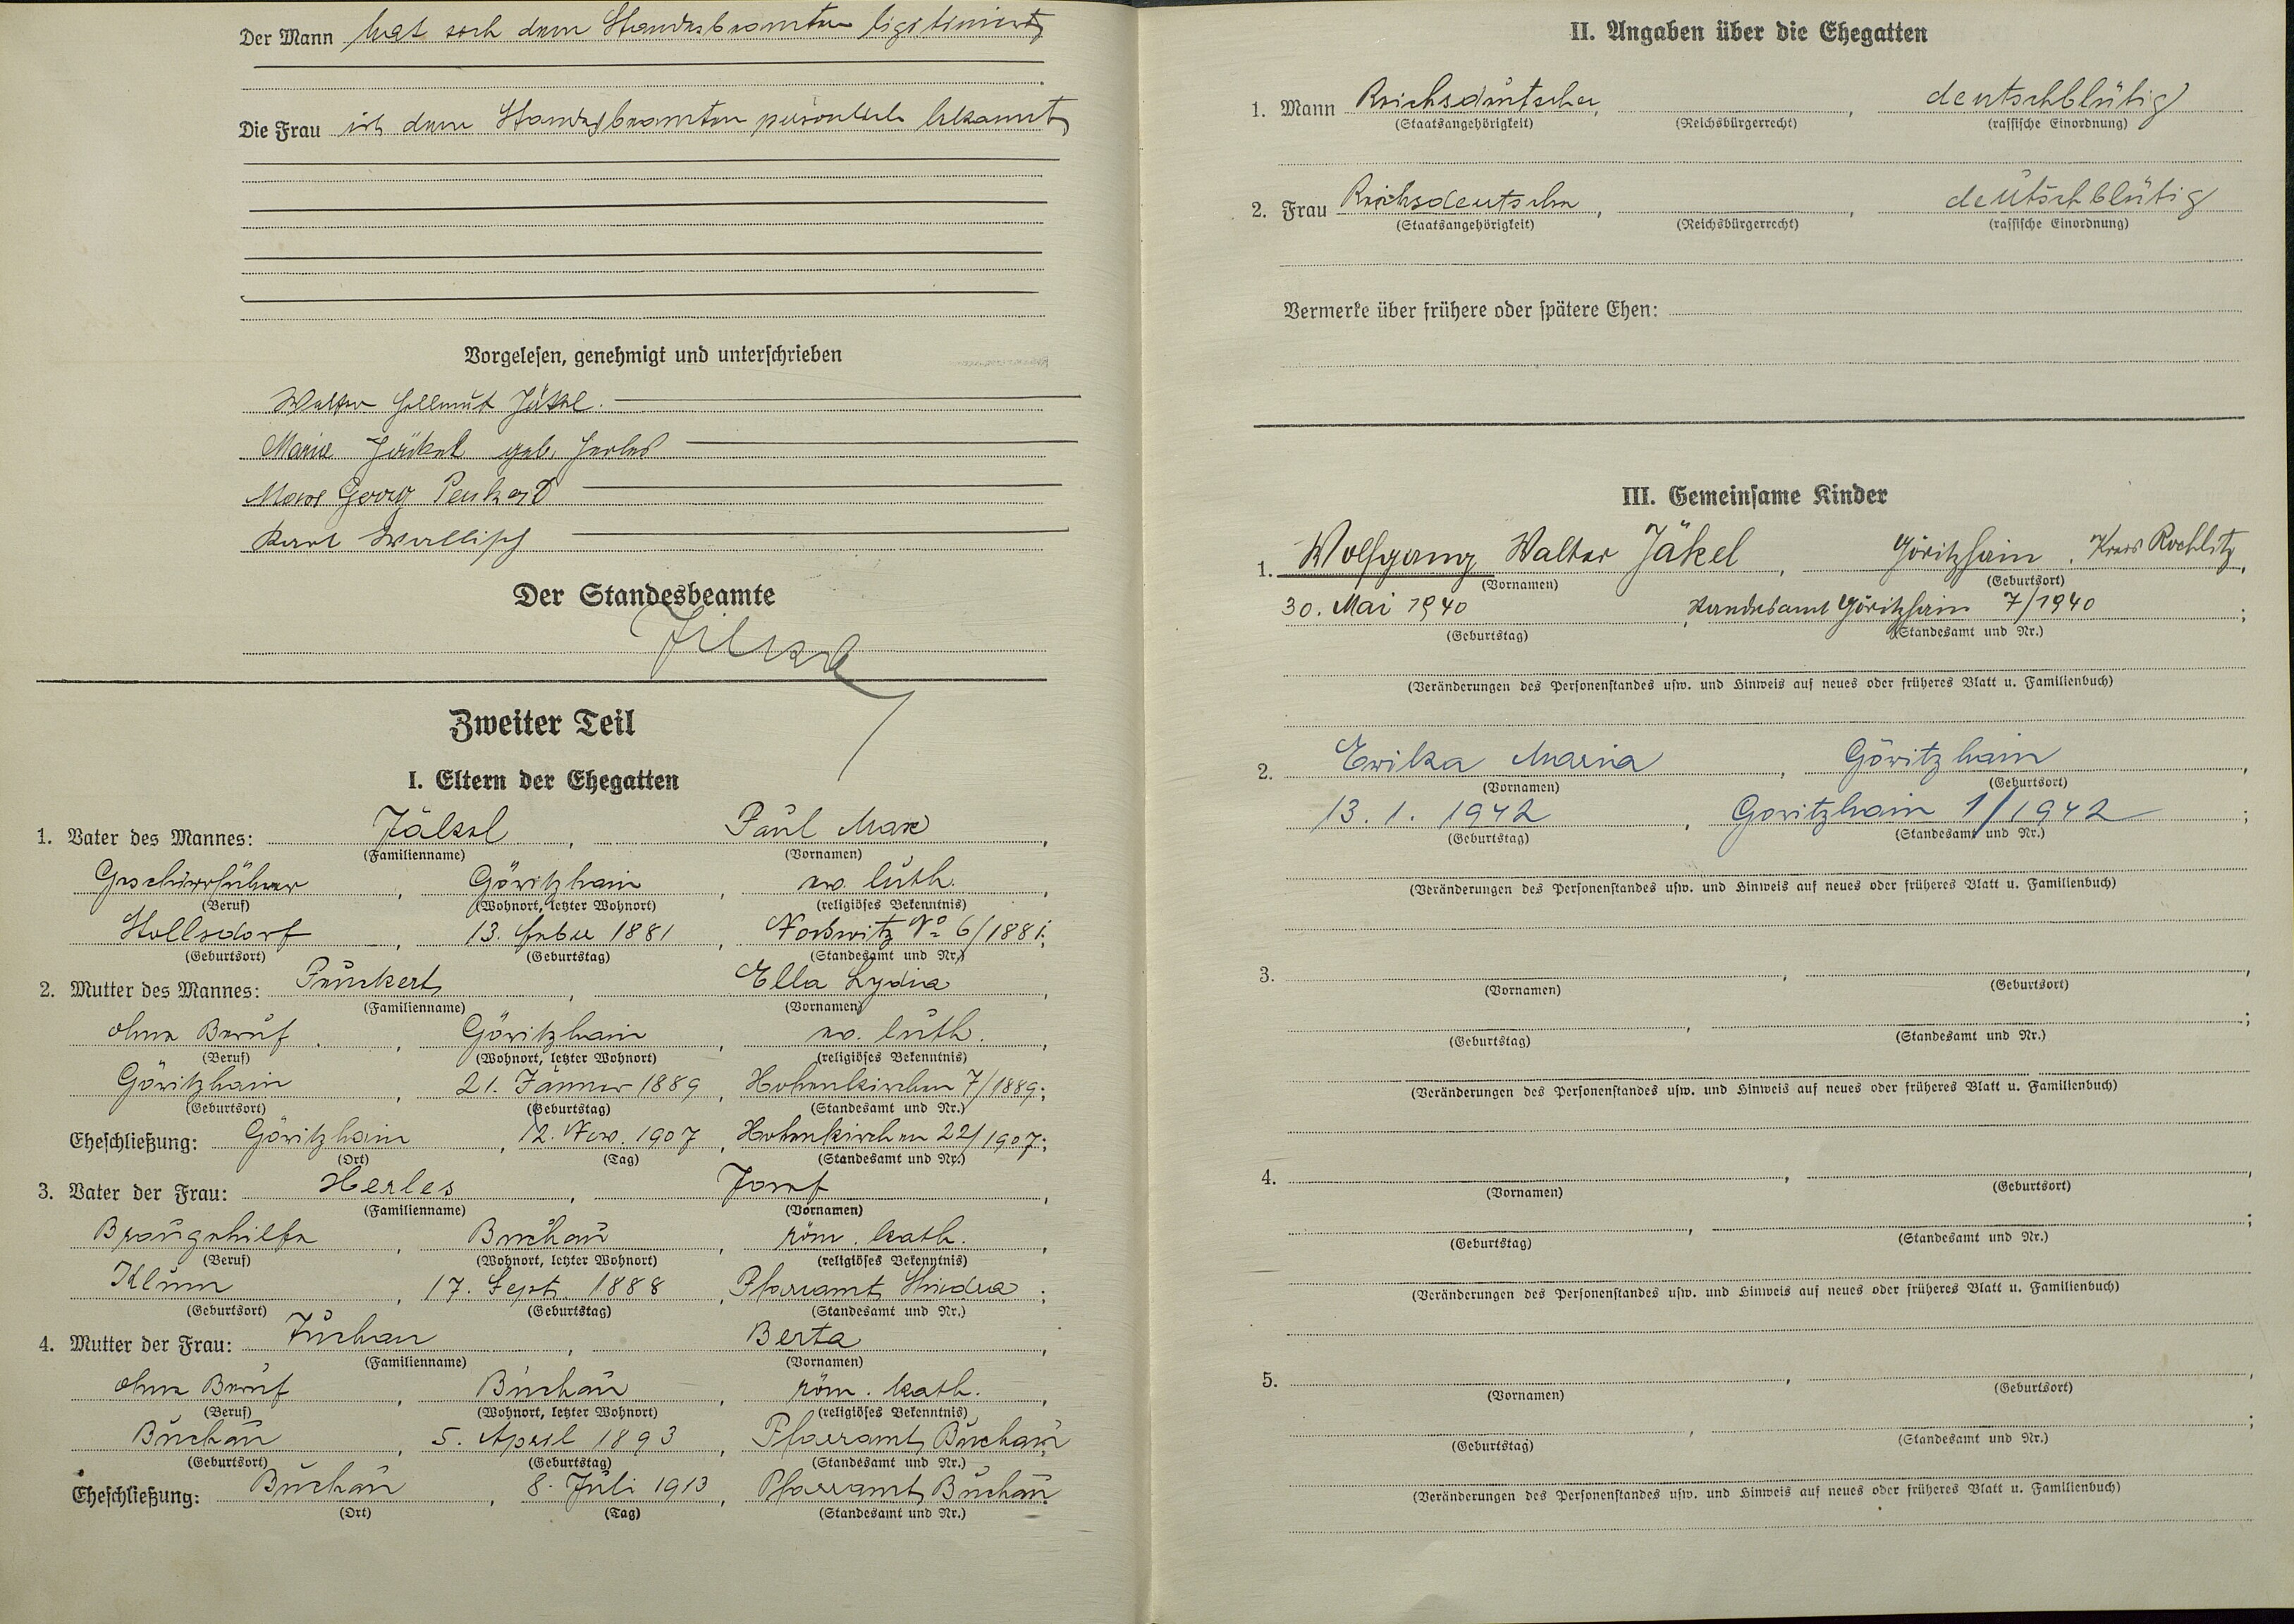 Der Mann hat sich dem Standesbeamten legitimiert
Die Frau ist dem Standesbeamten persönlich bekannt
Vorgelesen, genehmigt und unterschrieben
Walter Hellmut Jäkel.
Marie Jäkel geb. Herles
Max Georg
Karl Wallisch
Der Standesbeamte
Zweiter Teil
I. Eltern der Ehegatten
1. Vater des Mannes: Jäkel, Paul Max,
(Familienname) (Vornamen)
Geschirrführer, Göritzhain, ev. luth.,
(Beruf) (Wohnort, letzter Wohnort) (religiöses Bekenntnis)
Stollsdorf, 13. Feber 1881, No 6/1881;
(Geburtsort) (Geburtstag) (Standesamt und Nr.)
2. Mutter des Mannes: Punckert, Ella Lydia,
(Familienname) (Vornamen)
ohne Beruf, Göritzhain, ev. luth.,
(Beruf) (Wohnort, letzter Wohnort) (religiöses Bekenntnis)
Göritzhain, 21. Jänner 1889, Hohenkirchen 7/1889;
(Geburtsort) (Geburtstag) (Standesamt und Nr.)
Eheschließung: Göritzhain, 12. Nov. 1907, Hohenkirchen 22/1907;
(Ort) (Tag) (Standesamt und Nr.)
3. Vater der Frau: Herles, Josef,
(Familienname) (Vornamen)
Braugehilfe, Buchau, röm. kath.,
(Beruf) (Wohnort, letzter Wohnort) (religiöses Bekenntnis)
Klum, 17. Sept. 1888, Pfarramt;
(Geburtsort) (Geburtstag) (Standesamt und Nr.)
4. Mutter der Frau: Berta,
(Familienname) (Vornamen)
ohne Beruf, Buchau, röm. kath.,
(Beruf) (Wohnort, letzter Wohnort) (religiöses Bekenntnis)
Buchau, 5. April 1893, Pfarramt Buchau;
(Geburtsort) (Geburtstag) (Standesamt und Nr.)
Eheschließung: Buchau, 8. Juli 1913, Pfarramt Buchau
(Ort) (Tag) (Standesamt und Nr.)
II. Angaben über die Ehegatten
1. Mann Reichsdeutscher, , deutschblütig
(Staatsangehörigkeit) (Reichsbürgerrecht) (rassische Einordnung)
2. Frau Reichsdeutsche, , deutschblütig
(Staatsangehörigkeit) (Reichsbürgerrecht) (rassische Einordnung)
Vermerke über frühere oder spätere Ehen:
III. Gemeinsame Kinder
1. Wolfgang Walter Jäkel, Göritzhain, Kreis Rochlitz,
(Vornamen) (Geburtsort)
30. Mai 1940, Standesamt Göritzhain 7/1940;
(Geburtstag) (Standesamt und Nr.)
(Veränderungen des Personenstandes usw. und Hinweis auf neues oder früheres Blatt u. Familienbuch)
2. Erika Maria, Göritzhain,
(Vornamen) (Geburtsort)
13. 1. 1942, Göritzhain 1/1942;
(Geburtstag) (Standesamt und Nr.)
(Veränderungen des Personenstandes usw. und Hinweis auf neues oder früheres Blatt u. Familienbuch)
3. , ,
(Vornamen) (Geburtsort)
, ;
(Geburtstag) (Standesamt und Nr.)
(Veränderungen des Personenstandes usw. und Hinweis auf neues oder früheres Blatt u. Familienbuch)
4. , ,
(Vornamen) (Geburtsort)
, ;
(Geburtstag) (Standesamt und Nr.)
(Veränderungen des Personenstandes usw. und Hinweis auf neues oder früheres Blatt u. Familienbuch)
5. , ,
(Vornamen) (Geburtsort)
, ;
(Geburtstag) (Standesamt und Nr.)
(Veränderungen des Personenstandes usw. und Hinweis auf neues oder früheres Blatt u. Familienbuch)